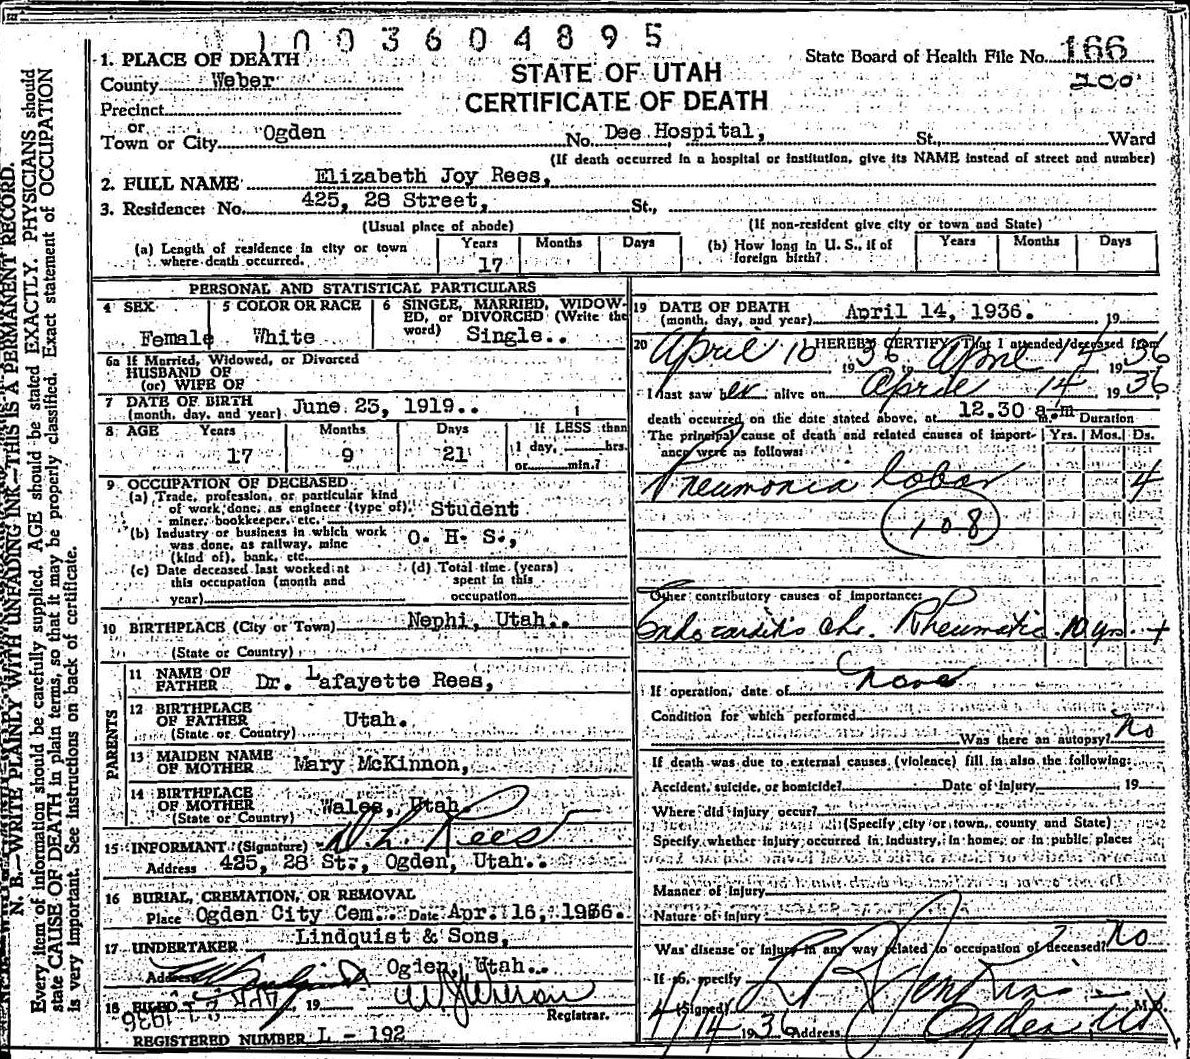 1003604895
1. PLACE OF DEATH
State Board of Health File No. 166
200
County Weber
STATE OF UTAH
CERTIFICATE OF DEATH
Precinct
or
Town or City Ogden No. Dee Hospital, St., Ward
(If death occurred in a hospital or institution, give its NAME instead of street and number)
2. FULL NAME Elizabeth Joy Rees,
3. Residence: No. 425, 28 Street, St.,
(Usual place of abode) (If non-resident give city or town and State)
(a) Length of residence in city or town where death occurred. Years 17 Months Days
(b) How long in U. S., if of foreign birth? Years Months Days
PERSONAL AND STATISTICAL PARTICULARS
4 SEX Female
5 COLOR OR RACE White
6 SINGLE, MARRIED, WIDOWED, or DIVORCED (Write the word) Single..
6a If Married, Widowed, or Divorced
HUSBAND OF
(or) WIFE OF
7 DATE OF BIRTH
(month, day, and year) June 23, 1919..
8 AGE Years 17 Months 9 Days 21 If LESS than 1 day, hrs. or min.?
9 OCCUPATION OF DECEASED
(a) Trade, profession, or particular kind
of work done, as engineer (type of),
miner, bookkeeper, etc. Student
(b) Industry or business in which work
was done, as railway, mine
(kind of), bank, etc. O. H. S.,
(c) Date deceased last worked at
this occupation (month and
year)
(d) Total time (years)
spent in this
occupation
10 BIRTHPLACE (City or Town) Nephi, Utah..
(State or Country)
PARENTS
11 NAME OF
FATHER Dr. Lafayette Rees,
12 BIRTHPLACE
OF FATHER Utah.
(State or Country)
13 MAIDEN NAME
OF MOTHER Mary McKinnon,
14 BIRTHPLACE
OF MOTHER Wales, Utah
(State or Country)
15 INFORMANT (Signature) D. L. Rees
Address 425, 28 St., Ogden, Utah..
16 BURIAL, CREMATION, OR REMOVAL
Place Ogden City Cem.. Date Apr. 16, 1936.
17 UNDERTAKER Lindquist & Sons,
Address Ogden, Utah..
18 FILED 19
1936
Registrar.
REGISTERED NUMBER L - 192
19 DATE OF DEATH
(month, day, and year) April 14, 1936. 19
20 I HEREBY CERTIFY, That I attended deceased from
April 10 1936 to April 14 1936
I last saw her alive on April 14 1936
death occurred on the date stated above, at 12.30 a.m m. Duration
The principal cause of death and related causes of importance were as follows: Yrs. Mos. Ds.
Pneumonia lobar 4
108
Other contributory causes of importance:
Endocarditis chr. Rheumatic 10 yrs. +
If operation, date of none
Condition for which performed
Was there an autopsy? No
If death was due to external causes (violence) fill in also the following:
Accident, suicide, or homicide? Date of injury 19
Where did injury occur?
(Specify city or town, county and State)
Specify whether injury occurred in industry, in home, or in public place:
Manner of injury
Nature of injury
Was disease or injury in any way related to occupation of deceased? No
If so, specify
(Signed) M. D.
4/14 1936 Address Ogden Ut
N. B.—WRITE PLAINLY WITH UNFADING INK—THIS IS A PERMANENT RECORD.
Every item of information should be carefully supplied. AGE should be stated EXACTLY. PHYSICIANS should
state CAUSE OF DEATH in plain terms, so that it may be properly classified. Exact statement of OCCUPATION
is very important. See instructions on back of certificate.